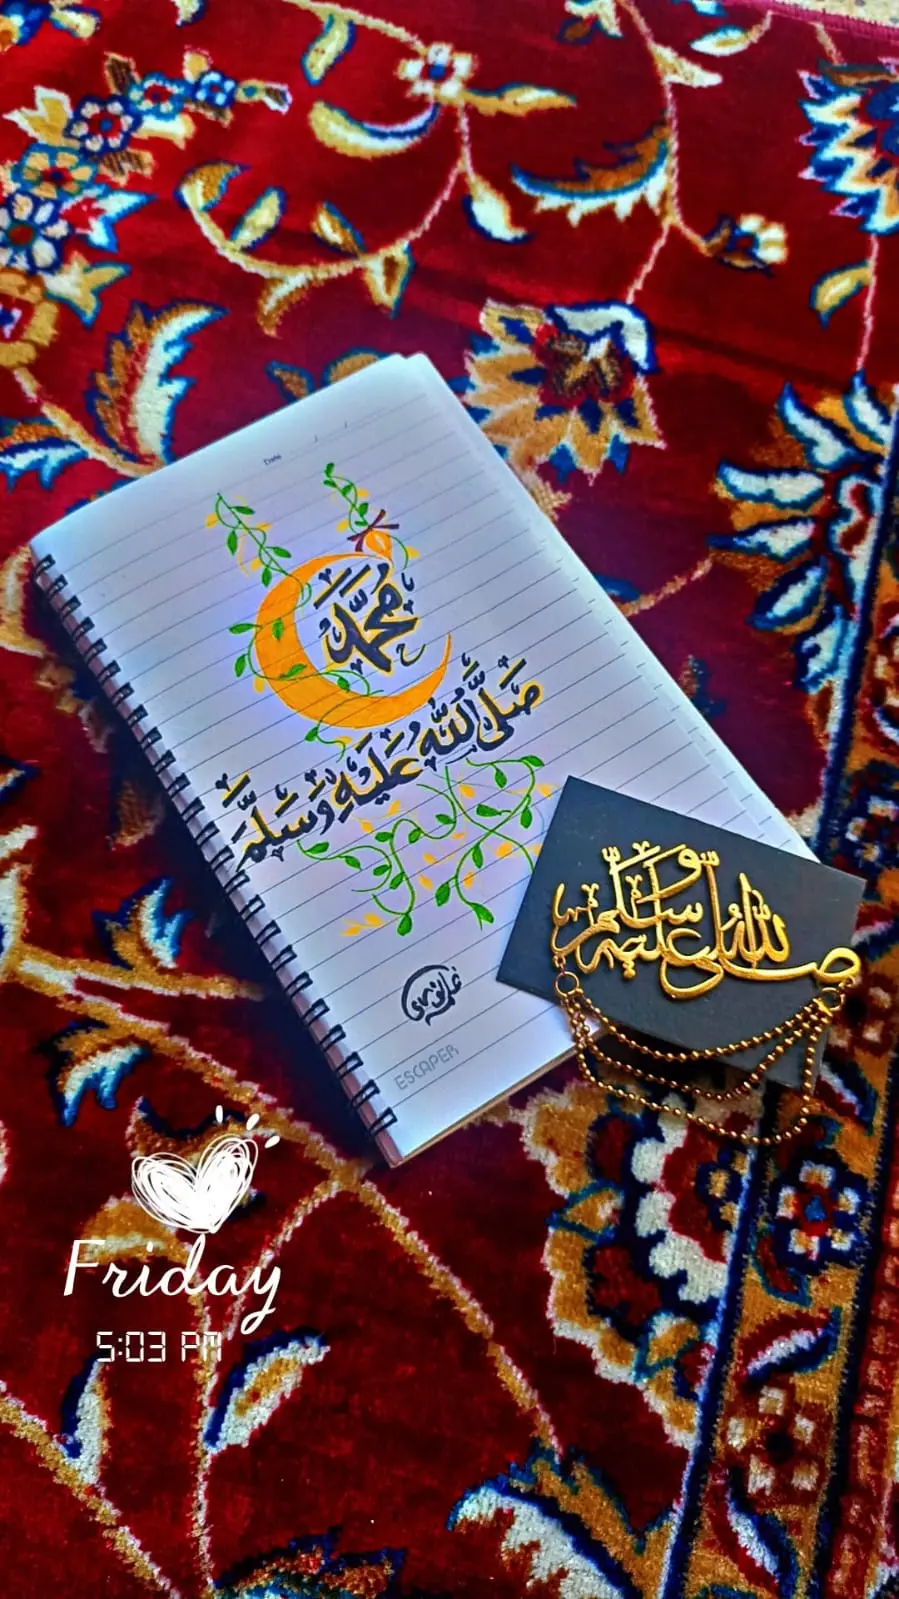 Date / /
مُحَمَّد
صَلَّى اللَّهُ عَلَيْهِ وَسَلَّمَ
ESCAPER
صلى الله عليه وسلم
Friday
5:03 PM